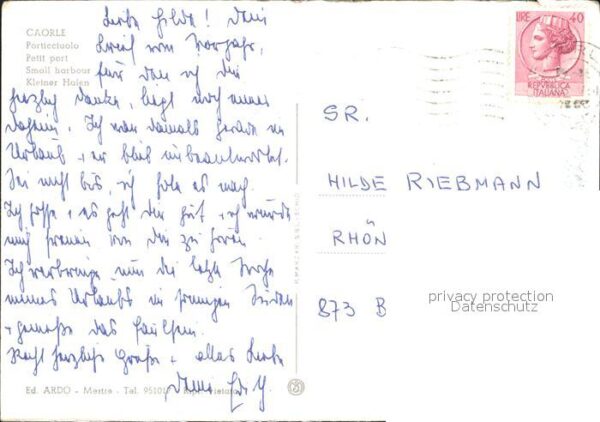 CAORLE
Porticciuolo
Petit port
Small harbour
Kleiner Hafen
Liebe Hilde! Dein
Brief vom Vorjahr,
für den ich Dir
herzlich danke, liegt noch immer
daheim. Ich war damals gerade im
Urlaub + er blieb unbeantwortet.
Sei nicht bös, ich hole es nach.
Ich hoffe, es geht Dir gut, ich würde
mich freuen von Dir zu hören.
Ich verbringe nun die letzte Woche
meines Urlaubs im sonnigen Süden
+ genieße das Faulsein.
Recht herzliche Grüße + alles Liebe
Deine
Ed. ARDO - Mestre - Tel. 9510
LIRE 40
REPVBBLICA
ITALIANA
SR.
HILDE RIEBMANN
RHÖN
873 B
privacy protection
Datenschutz